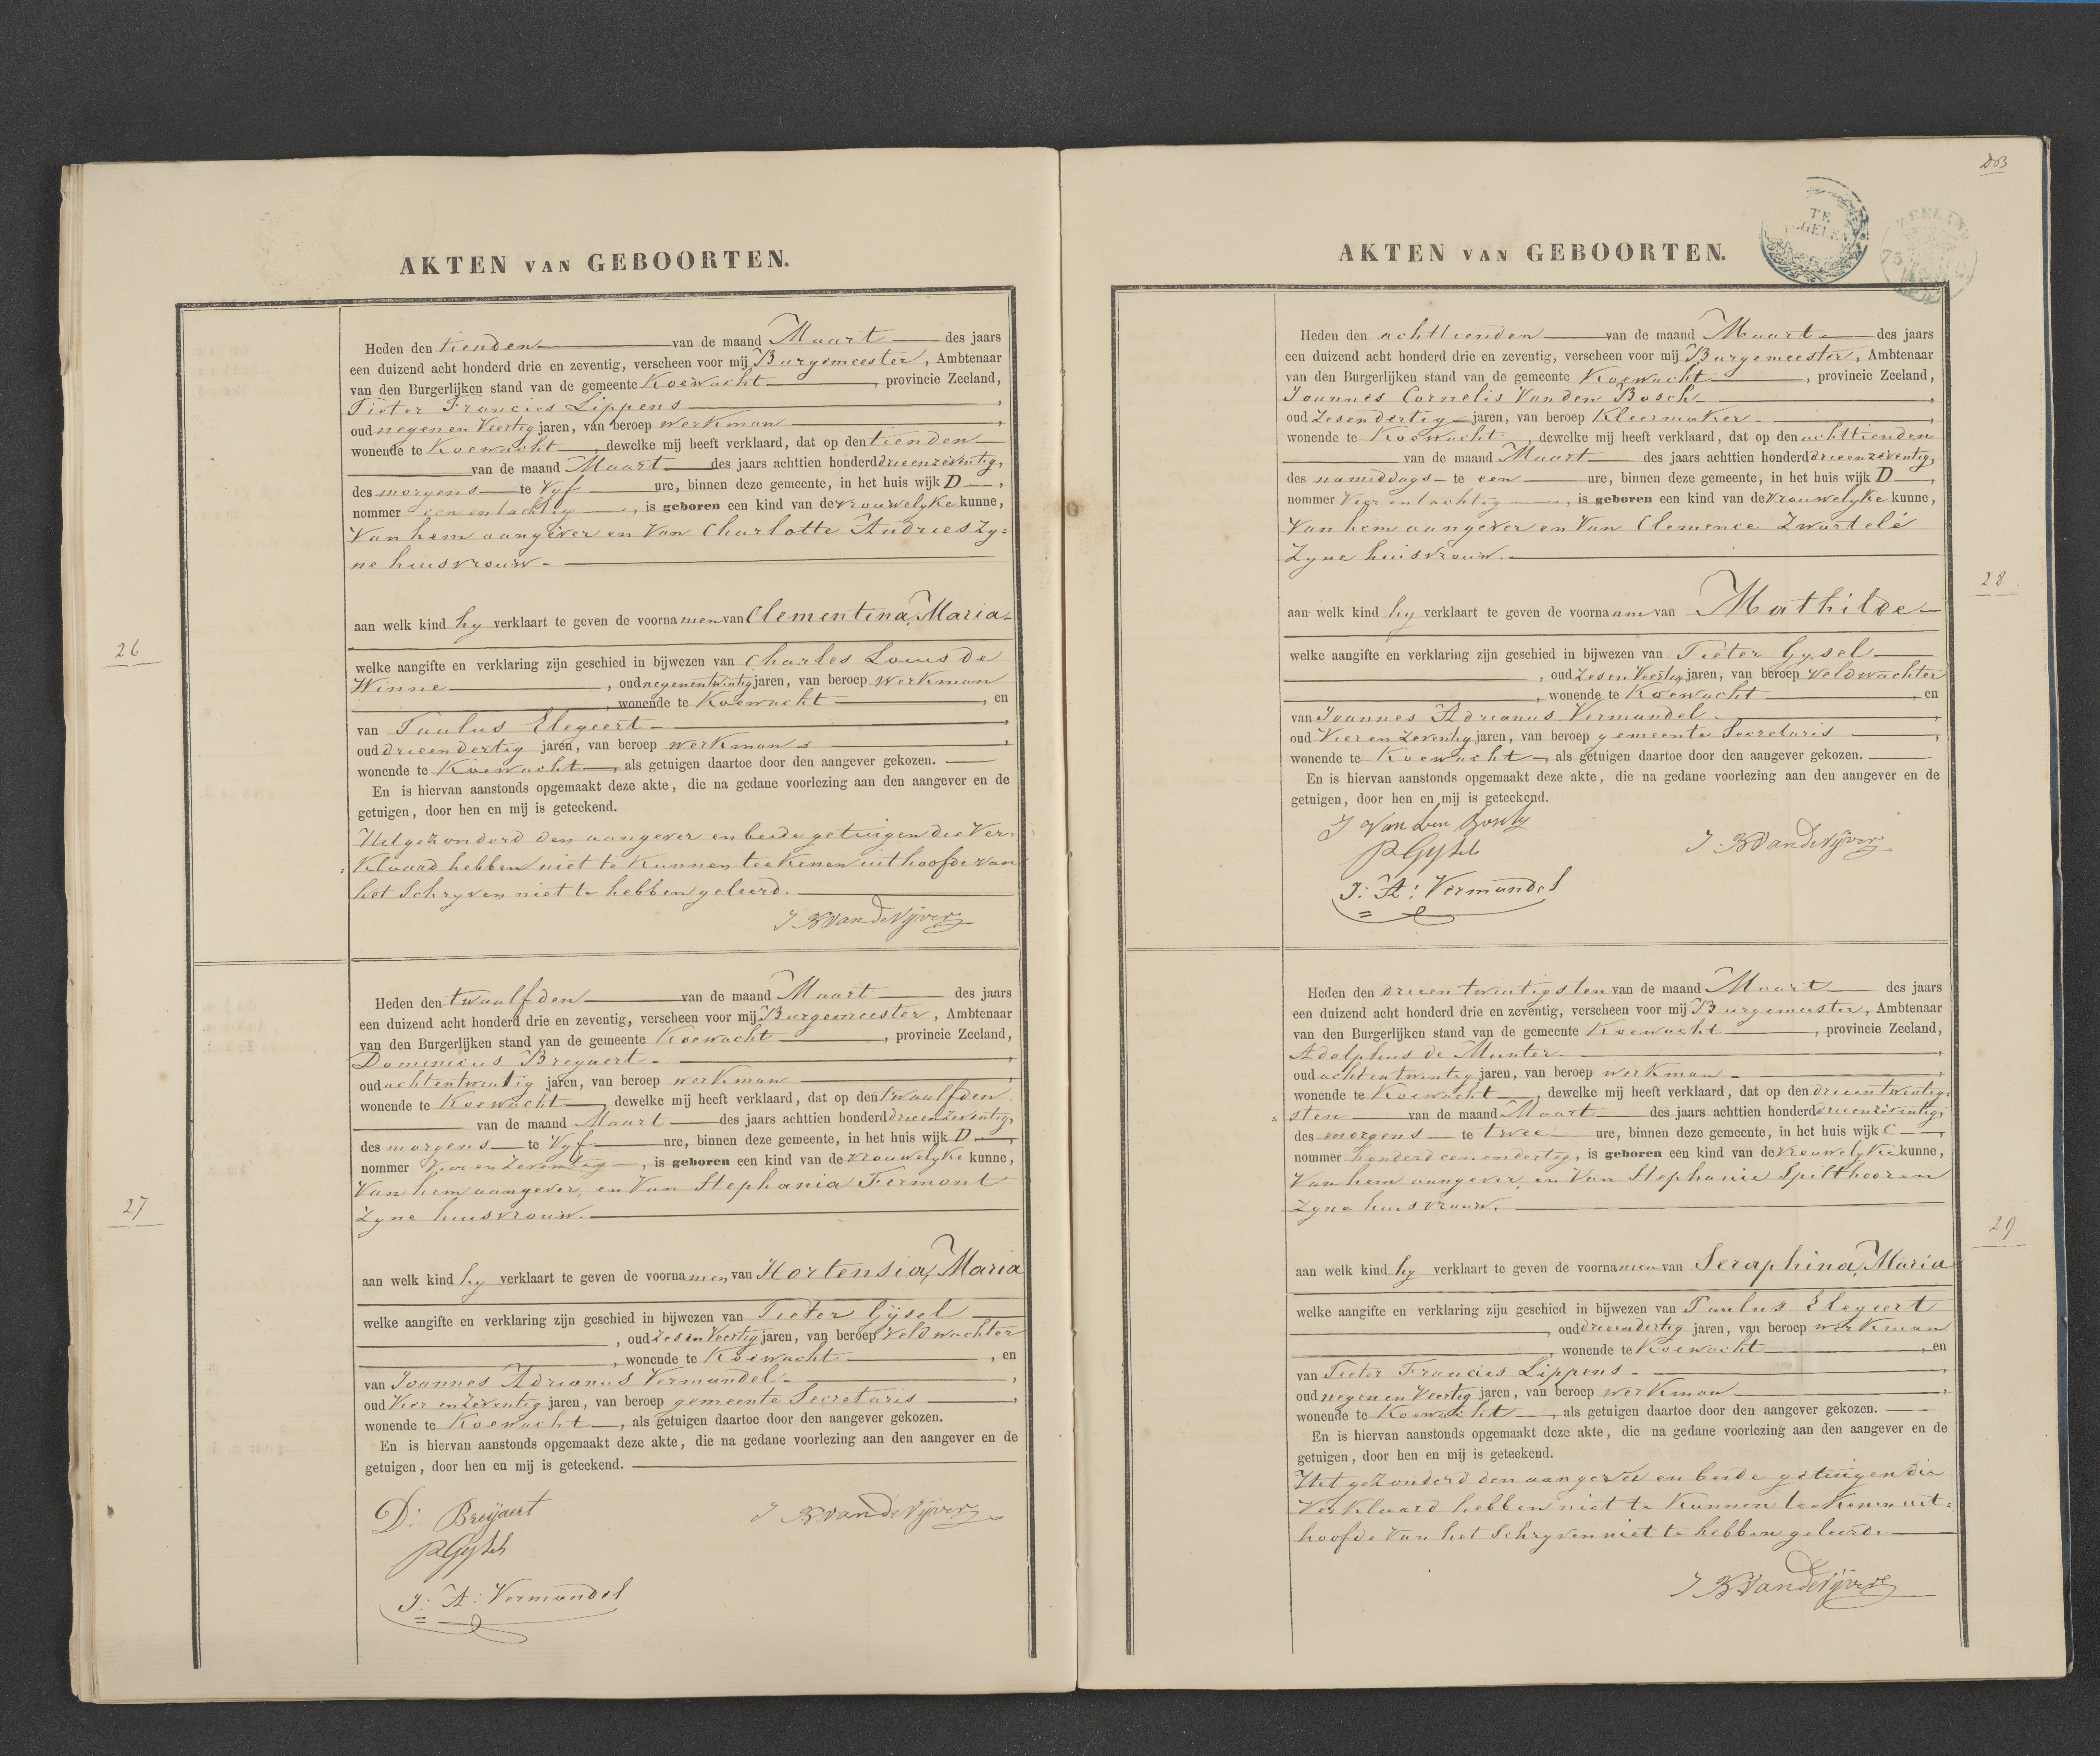 AKTEN VAN GEBOORTEN.
Heden den tienden van de maand Maart des jaars
een duizend acht honderd drie en zeventig, verscheen voor mij Burgemeester, Ambtenaar
van den Burgerlijken stand van de gemeente Koewacht, provincie Zeeland,
Pieter Francies Lippens
oud negen en Veertig jaren, van beroep werkman
wonende te Koewacht, dewelke mij heeft verklaard, dat op den tienden
van de maand Maart des jaars achttien honderd drieenzeventig,
des morgens te Vyf ure, binnen deze gemeente, in het huis wijk D,
nommer een en tachtig, is geboren een kind van de vrouwelyke kunne,
Van hem aangever en Van Charlotte Andries Zy=
ne huisvrouw.
26
aan welk kind hy verklaart te geven de voornamen van Clementina, Maria.
welke aangifte en verklaring zijn geschied in bijwezen van Charles Louis de
Winne, oud negenentwintig jaren, van beroep Werkman
, wonende te Koewacht, en
van Paulus Elegeert
oud drieendertig jaren, van beroep werkman
wonende te Koewacht, als getuigen daartoe door den aangever gekozen.
En is hiervan aanstonds opgemaakt deze akte, die na gedane voorlezing aan den aangever en de
getuigen, door hen en mij is geteekend.
Uitgezonderd den aangever en beide getuigen die Ver=
=klaard hebben niet te kunnen teekenen uithoofde van
het Schryven niet te hebben geleerd.
J B Van de Vijver
Heden den twaalfden van de maand Maart des jaars
een duizend acht honderd drie en zeventig, verscheen voor mij Burgemeester, Ambtenaar
van den Burgerlijken stand van de gemeente Koewacht, provincie Zeeland,
Dominicus Breyaert
oud achtentwintig jaren, van beroep werkman
wonende te Koewacht, dewelke mij heeft verklaard, dat op den twaalfden
van de maand Maart des jaars achttien honderd drieenzeventig,
des morgens te Vyf ure, binnen deze gemeente, in het huis wijk D,
nommer en Zeventig, is geboren een kind van de vrouwelyke kunne,
Van hem aangever, en Van Stephania Fermont
27
Zyne huisvrouw.
aan welk kind hy verklaart te geven de voornamen van Hortensia, Maria
welke aangifte en verklaring zijn geschied in bijwezen van Pieter Gijsel
, oud Zes en Veertig jaren, van beroep Veldwachter
, wonende te Koewacht, en
van Joannes Adrianus Vermandel
oud Vier en Zeventig jaren, van beroep gemeente Secretaris
wonende te Koewacht, als getuigen daartoe door den aangever gekozen.
En is hiervan aanstonds opgemaakt deze akte, die na gedane voorlezing aan den aangever en de
getuigen, door hen en mij is geteekend.
D: Breijaert
J B Van de Vijver
P Gysel
J: A: Vermandel
AKTEN VAN GEBOORTEN.
TE
ZEGELEN
ZEELAND
75 C
Heden den achttienden van de maand Maart des jaars
een duizend acht honderd drie en zeventig, verscheen voor mij Burgemeester, Ambtenaar
van den Burgerlijken stand van de gemeente Koewacht, provincie Zeeland,
Joannes Cornelis Van den Bosch
oud Zesendertig jaren, van beroep Kleermaker
wonende te Koewacht, dewelke mij heeft verklaard, dat op den achttienden
van de maand Maart des jaars achttien honderd drieenzeventig,
des namiddags te een ure, binnen deze gemeente, in het huis wijk D,
nommer Vier entachtig, is geboren een kind van de Vrouwelyke kunne,
Van hem aangever en Van Clemence Zwartelé
Zyne huisvrouw.
28
aan welk kind hy verklaart te geven de voornaam van Mathilde
welke aangifte en verklaring zijn geschied in bijwezen van Pieter Gysel
, oud Zes en Veertig jaren, van beroep Veldwachter
, wonende te Koewacht, en
van Joannes Adrianus Vermandel.
oud Vier en Zeventig jaren, van beroep gemeente Secretaris
wonende te Koewacht, als getuigen daartoe door den aangever gekozen.
En is hiervan aanstonds opgemaakt deze akte, die na gedane voorlezing aan den aangever en de
getuigen, door hen en mij is geteekend.
J Van den Bosch
J. B Van de Vijver
P Gysel
J: A: Vermandel
Heden den drieentwintigsten van de maand Maart des jaars
een duizend acht honderd drie en zeventig, verscheen voor mij Burgemeester, Ambtenaar
van den Burgerlijken stand van de gemeente Koewacht, provincie Zeeland,
Adolphus de Munter
oud achtentwintig jaren, van beroep werkman
wonende te Koewacht, dewelke mij heeft verklaard, dat op den drieentwintig=
=sten van de maand Maart des jaars achttien honderd drieenzeventig,
des morgens te twee ure, binnen deze gemeente, in het huis wijk C,
nommer honderd eenendertig, is geboren een kind van de vrouwelyke kunne,
Van hem aangever, en Van Stephanie Spilthooren
Zyne huisvrouw.
29
aan welk kind hy verklaart te geven de voornamen van Seraphina, Maria
welke aangifte en verklaring zijn geschied in bijwezen van Paulus Elegeert
, oud drieendertig jaren, van beroep werkman
, wonende te Koewacht, en
van Pieter Francies Lippens
oud negen en Veertig jaren, van beroep werkman
wonende te Koewacht, als getuigen daartoe door den aangever gekozen.
En is hiervan aanstonds opgemaakt deze akte, die na gedane voorlezing aan den aangever en de
getuigen, door hen en mij is geteekend.
Uitgezonderd den aangever en beide getuigen die
Verklaard hebben niet te kunnen teekenen uit=
hoofde Van het Schryven niet te hebben geleerd.
J B Van de Vijver